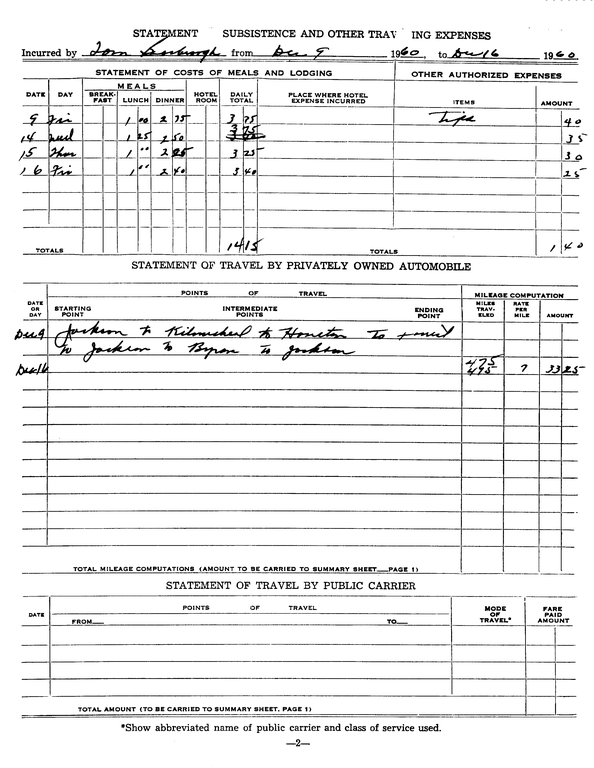 STATEMENT SUBSISTENCE AND OTHER TRAV ING EXPENSES
Incurred by Tom Scarbrough from Dec 9 1960, to Dec 16 1960
STATEMENT OF COSTS OF MEALS AND LODGING OTHER AUTHORIZED EXPENSES
DATE DAY MEALS BREAK-FAST LUNCH DINNER HOTEL ROOM DAILY TOTAL PLACE WHERE HOTEL EXPENSE INCURRED ITEMS AMOUNT
9 Fri 1 00 2 75 3 75 Tips 40
14 Wed 1 25 2 50 3 75 35
15 Thur 1 00 2 25 3 25 30
16 Fri 1 00 2 40 3 40 25
TOTALS 14 15 TOTALS 1 40
STATEMENT OF TRAVEL BY PRIVATELY OWNED AUTOMOBILE
DATE OR DAY POINTS OF TRAVEL MILEAGE COMPUTATION
STARTING POINT INTERMEDIATE POINTS ENDING POINT MILES TRAV-ELED RATE PER MILE AMOUNT
Dec 9 Jackson to to Houston to
to Jackson to Byron to Jackson
475
Dec 16 475 7 33 25
TOTAL MILEAGE COMPUTATIONS (AMOUNT TO BE CARRIED TO SUMMARY SHEET__PAGE 1)
STATEMENT OF TRAVEL BY PUBLIC CARRIER
DATE POINTS OF TRAVEL MODE OF TRAVEL* FARE PAID AMOUNT
FROM__ TO__
TOTAL AMOUNT (TO BE CARRIED TO SUMMARY SHEET, PAGE 1)
*Show abbreviated name of public carrier and class of service used.
—2—